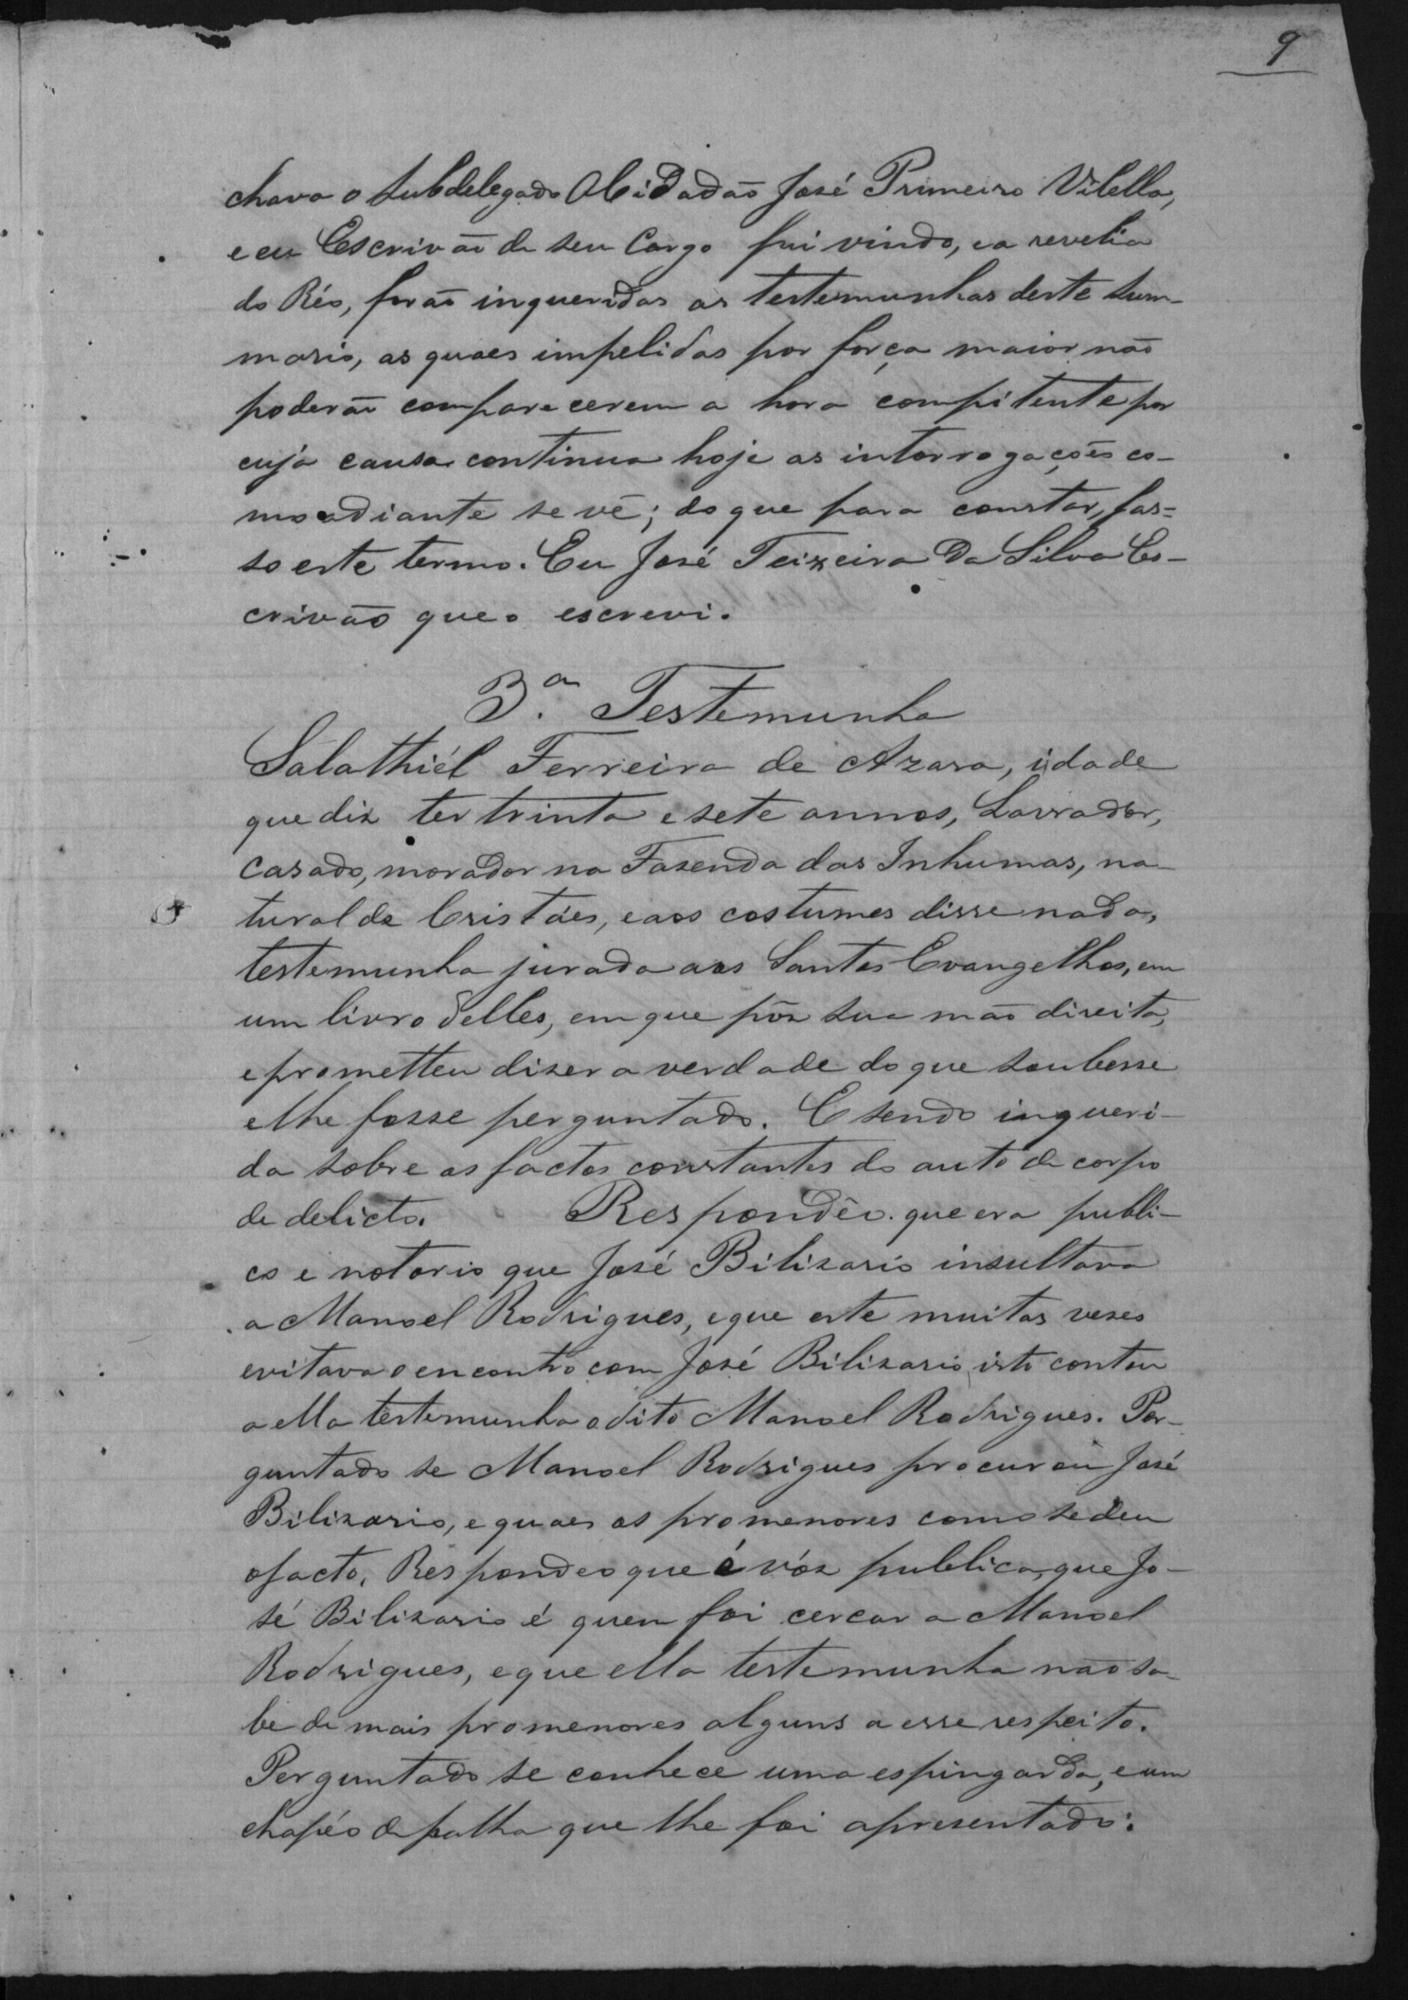 9
chava o Subdelegado O Cidadão José Primeiro Vilella,
e eu Escrivão de seu Cargo fui vindo, e a revelia
do Réo, forão inqueridas as testemunhas deste Sum-
mario, as quaes impelidas por força maior não
poderão comparecerem a hora compitente por
cuja causa continua hoje as interrogações co-
mo adiante se vê; do que para constar, fas=
so este termo. Eu José Teixeira da Silva Es-
crivão que o escrevi.
3.ª Testemunha
Salathiél Ferreira de Azara, idade
que diz ter trinta e sete annos, Lavrador,
Casado, morador na Fazenda das Inhumas, na-
tural de Cristáes, e aos costumes disse nada,
testemunha jurada aos Santos Evangelhos, em
um livro delles, em que pôz sua mão direita,
e prometteu dizer a verdade do que soubesse
e lhe fosse perguntado. E sendo inqueri-
da sobre os factos constantes do auto de corpo
de delicto. Respondêo. que era publi-
co e notorio que José Bilizario insultava
a Manoel Rodrigues, e que este muitas vezes
evitava o encontro com José Bilizario, isto contou
a ella testemunha o dito Manoel Rodrigues. Per-
guntado se Manoel Rodrigues procurou José
Bilizario, e quaes os promenores como se deu
o facto, Respondeo que é vóz publica, que Jo-
sé Bilizario é quem foi cercar a Manoel
Rodrigues, e que ella testemunha não sa-
be de mais promenores alguns a esse respeito.
Perguntado se conhece uma espingarda, e um
chapéo de palha que lhe foi apresentado: